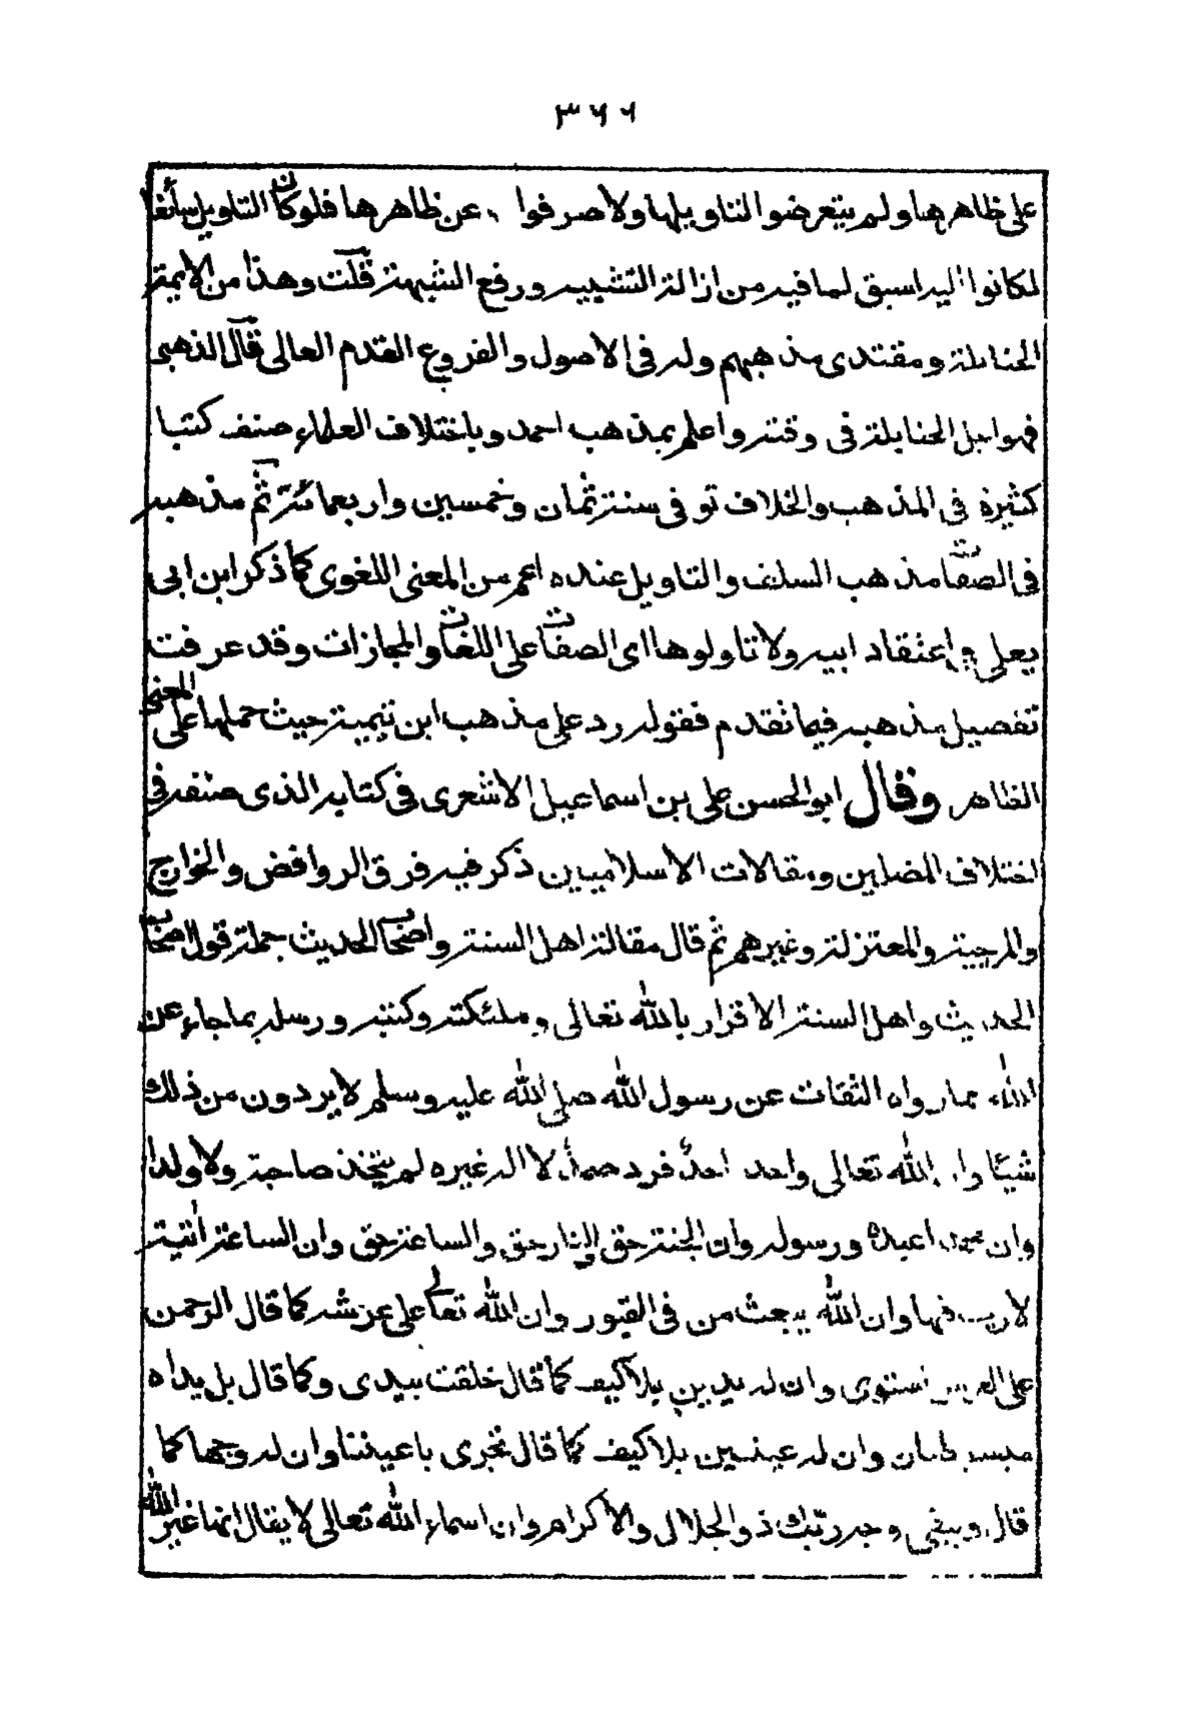 ٣٦٦
على ظاهرها ولم يتعرضوا لتاويلها ولا صرفوا عن ظاهرها فلو كان التاويل سائغا
لكانوا اليه اسبق لما فيه من ازالة التشبيه ورفع الشبهة قلت وهذا من الايمة
الحنابلة ومقتدى مذهبهم وله فى الاصول والفروع القدم العالى قال الذهبى
فهو اجل الحنابلة فى وقته واعلم بمذهب احمد وباختلاف العلماء صنف كتبا
كثيرة فى المذهب والخلاف توفى سنة ثمان وخمسين واربعمائة ثم مذهبه
فى الصفات مذهب السلف والتاويل عنده اعم من المعنى اللغوى كما ذكر ابن ابى
يعلى فى اعتقاد ابيه ولا تاولوها اى الصفات على اللغات والمجازات وقد عرفت
تفصيل مذهبه فيما تقدم فقوله رد على مذهب ابن تيمية حيث حملها على المعنى
الظاهر وقال ابو الحسن على بن اسماعيل الاشعرى فى كتابه الذى صنفه فى
اختلاف المضلين ومقالات الاسلاميين ذكر فيه فرق الروافض والخوارج
والمرجية والمعتزلة وغيرهم ثم قال مقالة اهل السنة واصحاب الحديث جملة قول اصحاب
الحديث واهل السنة الاقرار بالله تعالى وملئكته وكتبه ورسله بما جاء عن
الله مما رواه الثقات عن رسول الله صلى الله عليه وسلم لا يردون من ذلك
شيئا وان الله تعالى واحد احد فرد صمد لا اله غيره لم يتخذ صاحبة ولا ولدا
وان محمدا عبده ورسوله وان الجنة حق والنار حق والساعة حق وان الساعة اتية
لا ريب فيها وان الله يبعث من فى القبور وان الله تعالى على عرشه كما قال الرحمن
على العرش استوى وان له يدين بلا كيف كما قال خلقت بيدى وكما قال بل يداه
مبسوطتان وان له عينين بلا كيف كما قال تجرى باعيننا وان له وجها كما
قال ويبقى وجه ربك ذو الجلال والاكرام وان اسماء الله تعالى لا يقال انها غير الله